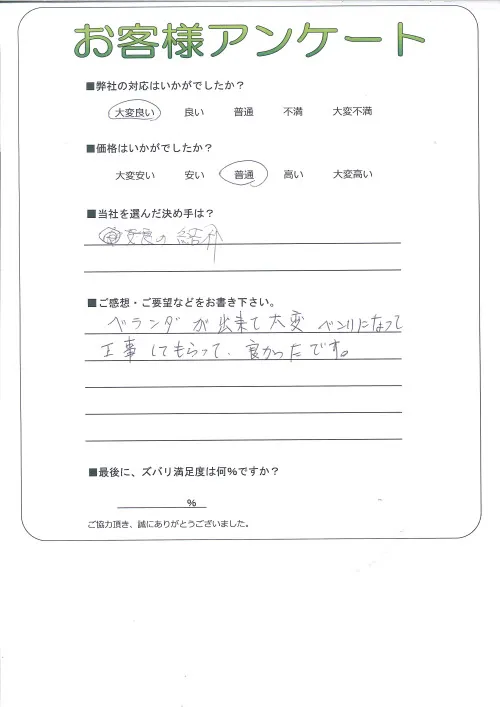 お客様アンケート
■弊社の対応はいかがでしたか？
大変良い 良い 普通 不満 大変不満
■価格はいかがでしたか？
大変安い 安い 普通 高い 大変高い
■当社を選んだ決め手は？
の紹介
■ご感想・ご要望などをお書き下さい。
ベランダが出来て大変ベンリになって
工事してもらって、良かったです。
■最後に、ズバリ満足度は何%ですか？
%
ご協力頂き、誠にありがとうございました。